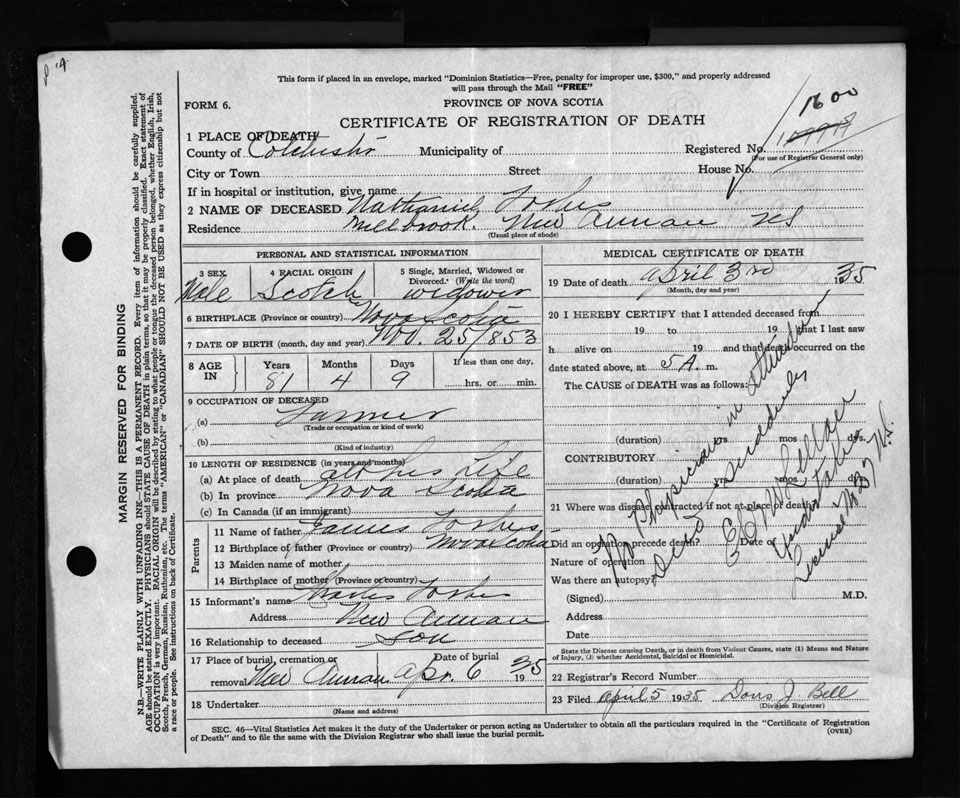 P 14
This form if placed in an envelope, marked "Dominion Statistics—Free, penalty for improper use, $300," and properly addressed
will pass through the Mail "FREE"
FORM 6.
PROVINCE OF NOVA SCOTIA
1600
CERTIFICATE OF REGISTRATION OF DEATH
1 PLACE OF DEATH
County of Colchester Municipality of Registered No.
(For use of Registrar General only)
City or Town Street House No.
If in hospital or institution, give name
2 NAME OF DECEASED Nathaniel Forbes
Residence Millbrook. New Annan NS
(Usual place of abode)
PERSONAL AND STATISTICAL INFORMATION
3 SEX 4 RACIAL ORIGIN 5 Single, Married, Widowed or
Divorced. (Write the word)
Male Scotch widower
6 BIRTHPLACE (Province or country) Nova Scotia
7 DATE OF BIRTH (month, day and year) Nov. 25 1853
8 AGE IN Years Months Days If less than one day,
81 4 9 hrs. or min.
9 OCCUPATION OF DECEASED
(a) Farmer
(Trade or occupation or kind of work)
(b)
(Kind of industry)
10 LENGTH OF RESIDENCE (in years and months)
(a) At place of death all his Life
(b) In province Nova Scotia
(c) In Canada (if an immigrant)
Parents
11 Name of father James Forbes
12 Birthplace of father (Province or country) Nova Scotia
13 Maiden name of mother
14 Birthplace of mother (Province or country)
15 Informant's name Charles Forbes
Address New Annan
16 Relationship to deceased Son
17 Place of burial, cremation or removal New Annan Date of burial Apr. 6 1935
18 Undertaker
(Name and address)
MEDICAL CERTIFICATE OF DEATH
19 Date of death April 3rd 1935
(Month, day and year)
20 I HEREBY CERTIFY that I attended deceased from
19 to 19 that I last saw
h alive on 19 and that death occurred on the
date stated above, at 5 A. m.
The CAUSE of DEATH was as follows:
(duration) yrs. mos. dys.
CONTRIBUTORY
(duration) yrs. mos. dys.
21 Where was disease contracted if not at place of death?
Did an operation precede death? Date of
Nature of operation
Was there an autopsy?
(Signed) M.D.
Address
Date
No Physician in attendance
Died suddenly
Undertaker
License No. N.S.
State the Disease causing Death, or in death from Violent Causes, state (1) Means and Nature
of Injury, (2) whether Accidental, Suicidal or Homicidal.
22 Registrar's Record Number
23 Filed April 5 1935 Doris J. Bell
(Division Registrar)
SEC. 46—Vital Statistics Act makes it the duty of the Undertaker or person acting as Undertaker to obtain all the particulars required in the "Certificate of Registration
of Death" and to file the same with the Division Registrar who shall issue the burial permit.
(OVER)
MARGIN RESERVED FOR BINDING
N.B.—WRITE PLAINLY WITH UNFADING INK—THIS IS A PERMANENT RECORD. Every item of information should be carefully supplied.
AGE should be stated EXACTLY. PHYSICIANS should STATE CAUSE OF DEATH in plain terms, so that it may be properly classified. Exact statement of
OCCUPATION is very important. RACIAL ORIGIN will be described by stating to what people or tongue the deceased person belonged, whether English, Irish,
Scotch, French, German, Russian, Ruthenian, etc. The terms "AMERICAN" or "CANADIAN" SHOULD NOT BE USED as they express citizenship but not
a race or people. See instructions on back of Certificate.